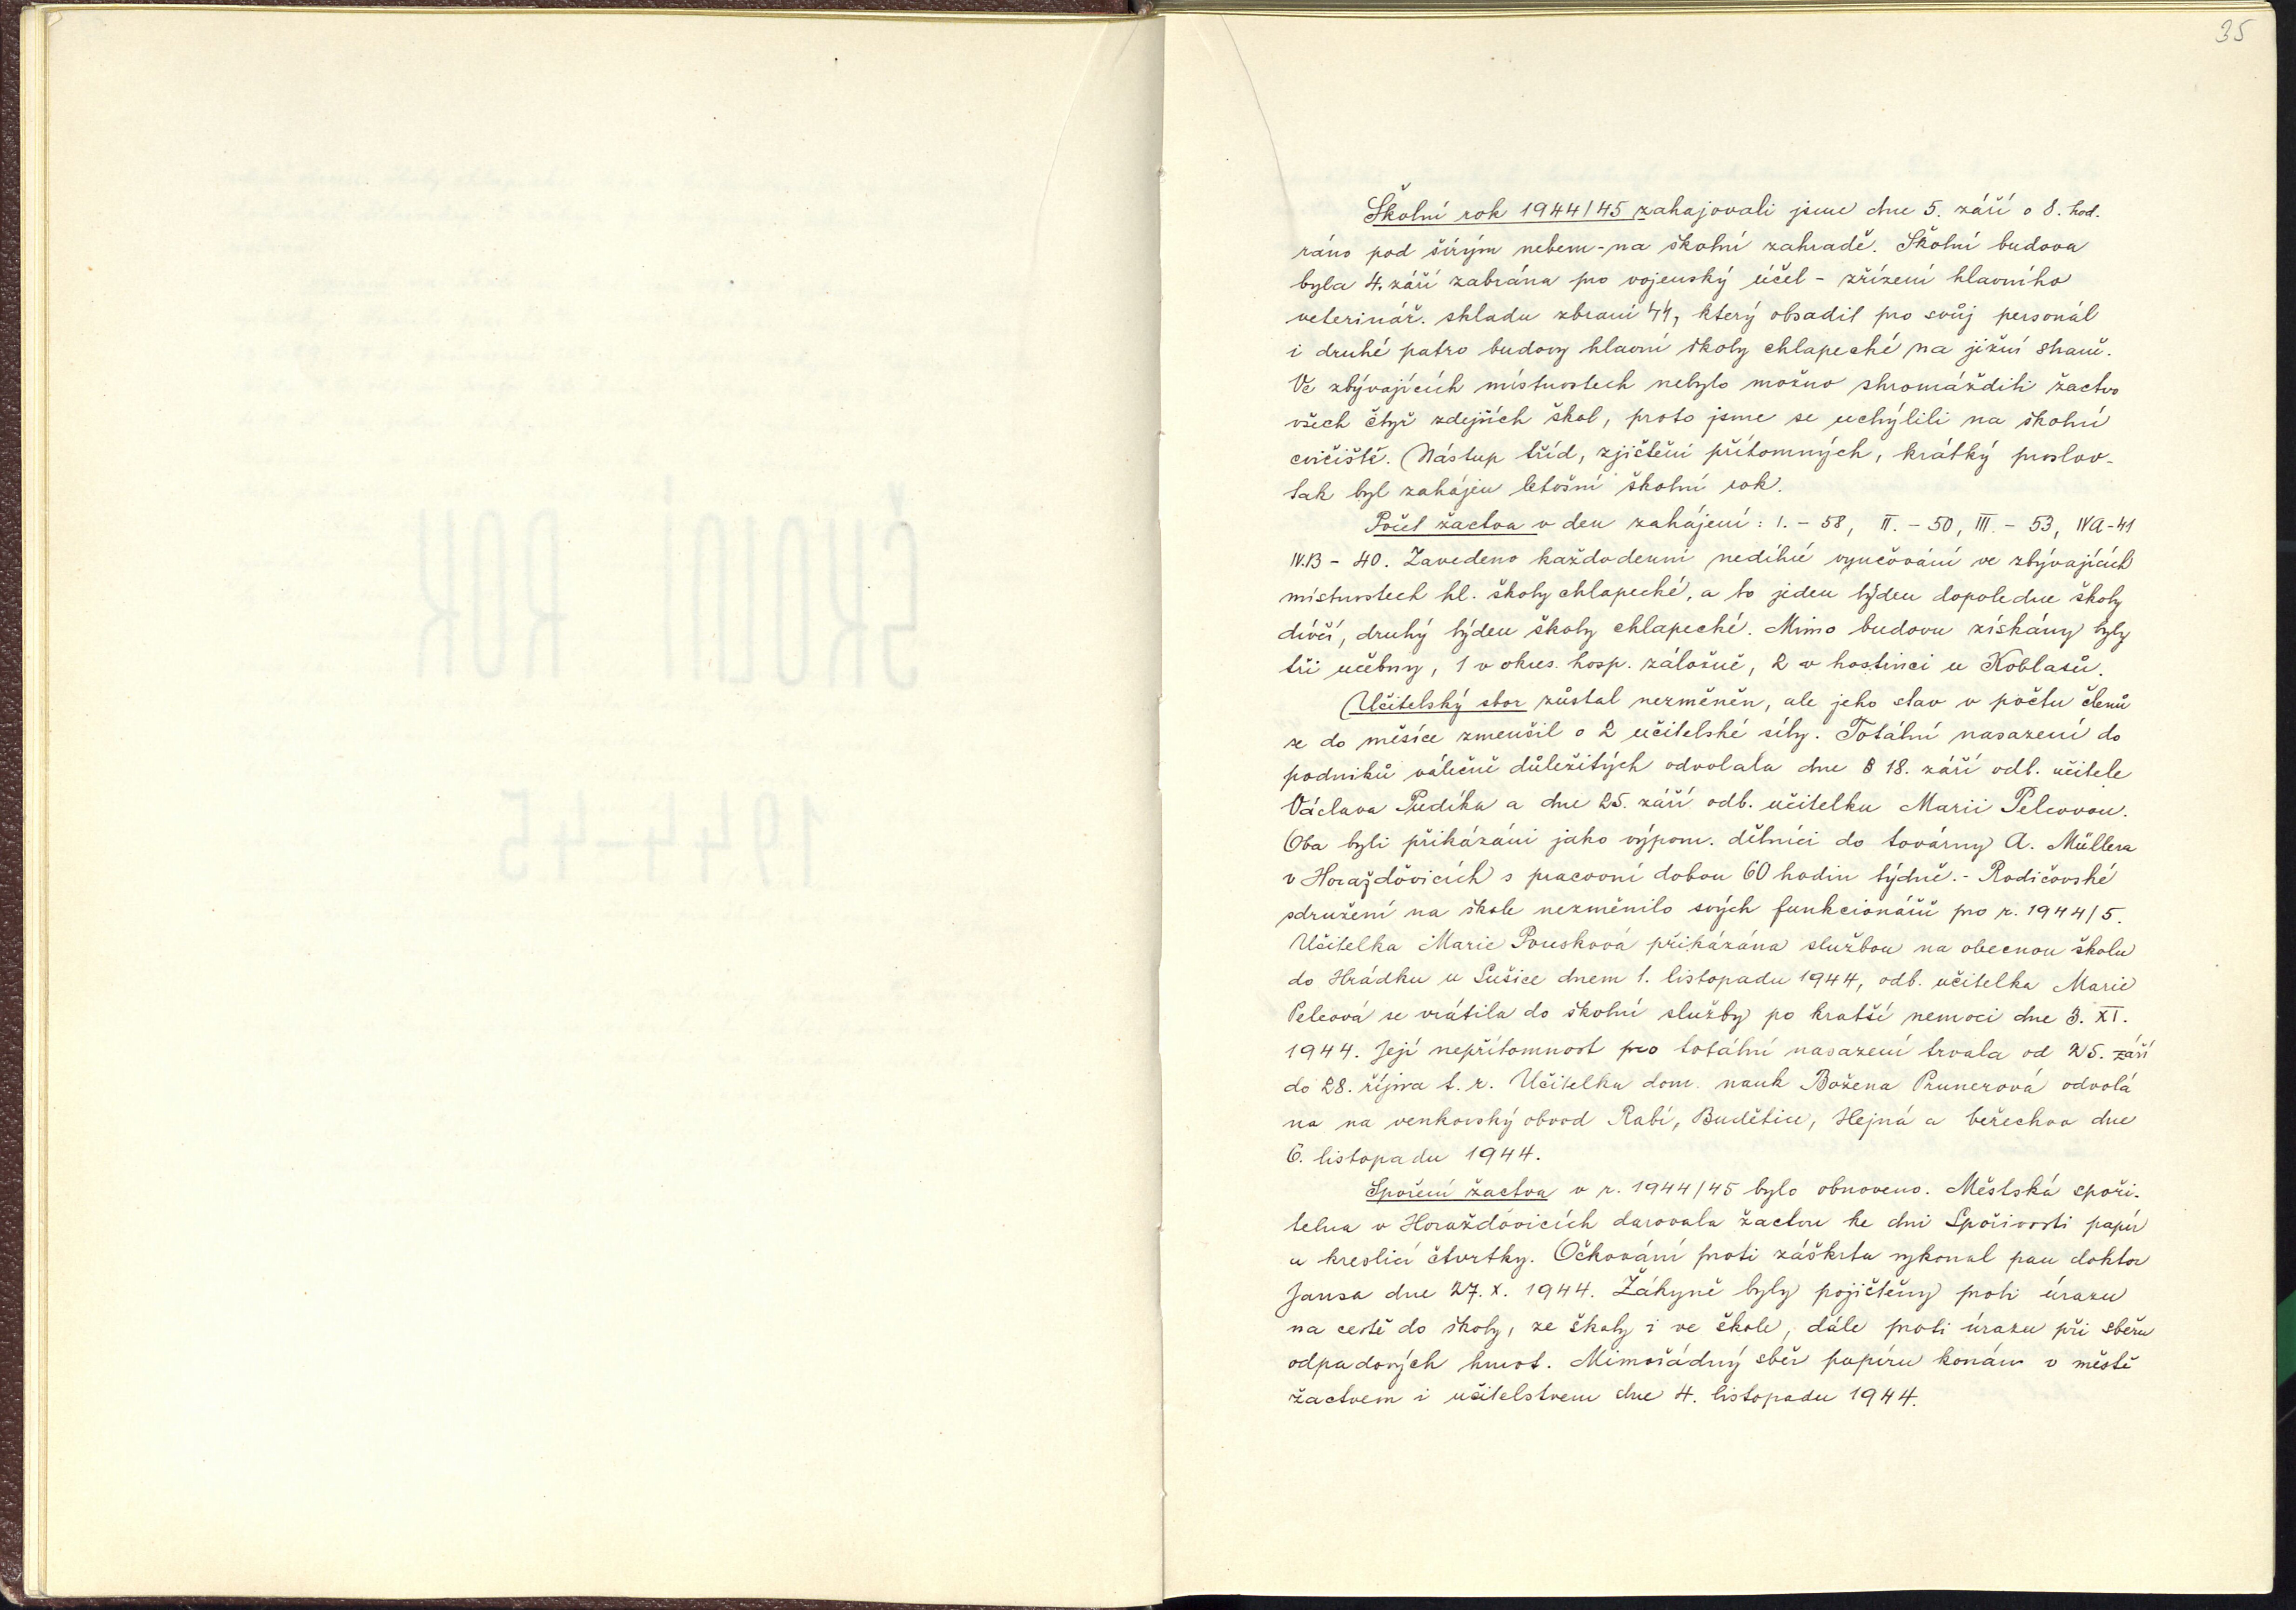 35
Školní rok 1944/45 zahajovali jsme dne 5. září o 8. hod.
ráno pod širým nebem - na školní zahradě. Školní budova
byla 4. září zabrána pro vojenský účel - zřízení hlavního
veterinář. skladu zbraní SS, který obsadil pro svůj personál
i druhé patro budovy hlavní školy chlapecké na jižní straně.
Ve zbývajících místnostech nebylo možno shromážditi žactvo
všech čtyř zdejších škol, proto jsme se uchýlili na školní
cvičiště. Nástup tříd, zjištění přítomných, krátký proslov -
tak byl zahájen letošní školní rok.
Počet žactva v den zahájení: I. - 58, II. - 50, III. - 53, IVA - 41
IV.B - 40. Zavedeno každodenní nedílné vyučování ve zbývajících
místnostech hl. školy chlapecké, a to jeden týden dopoledne školy
dívčí, druhý týden školy chlapecké. Mimo budovu získány byly
tři učebny, 1 v okres. hosp. záložně, 2 v hostinci u Koblasů.
Učitelský sbor zůstal nezměněn, ale jeho stav v počtu členů
se do měsíce zmenšil o 2 učitelské síly. Totální nasazení do
podniků válečně důležitých odvolala dne 18. září odb. učitele
Václava Pudíka a dne 25. září odb. učitelku Marii Pelcovou.
Oba byli přikázáni jako výpom. dělníci do továrny A. Müllera
v Horažďovicích s pracovní dobou 60 hodin týdně. - Rodičovské
sdružení na škole nezměnilo svých funkcionářů pro r. 1944/5.
Učitelka Marie Pousková přikázána službou na obecnou školu
do Hrádku u Sušice dnem 1. listopadu 1944, odb. učitelka Marie
Pelcová se vrátila do školní služby po kratší nemoci dne 3. XI.
1944. Její nepřítomnost pro totální nasazení trvala od 25. září
do 28. října t. r. Učitelka dom. nauk Božena Prunerová odvolá
na na venkovský obvod Rabí, Budětice, Hejná a Veřechov dne
6. listopadu 1944.
Spoření žactva v r. 1944/45 bylo obnoveno. Městská spoři-
telna v Horažďovicích darovala žactvu ke dni Spořivosti papír
a kreslicí čtvrtky. Očkování proti záškrtu vykonal pan doktor
Jansa dne 27. X. 1944. Žákyně byly pojištěny proti úrazu
na cestě do školy, ze školy i ve škole, dále proti úrazu při sběru
odpadových hmot. Mimořádný sběr papíru konán v městě
žactvem i učitelstvem dne 4. listopadu 1944.